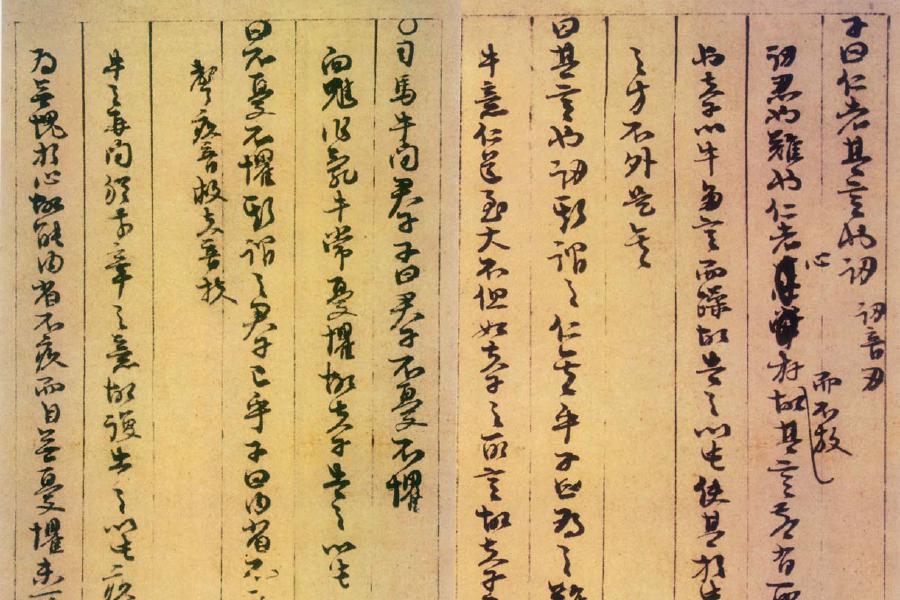 子曰仁者其言也訒 訒音刃
訒忍也難也仁者心存而不放故其言若有所
也夫子以牛多言而躁故告之以此使其於此
之方不外是矣
曰其言也訒斯謂之仁矣乎子曰為之難
牛意仁道至大不但如夫子之所言故夫子
○司馬牛問君子子曰君子不憂不懼
向魋作亂牛常憂懼故夫子告之以此
曰不憂不懼斯謂之君子已乎子曰內省不
聲疚音救夫音扶
牛之再問猶前章之意故復告之以此疚
為無愧於心故能內省不疚而自無憂懼未